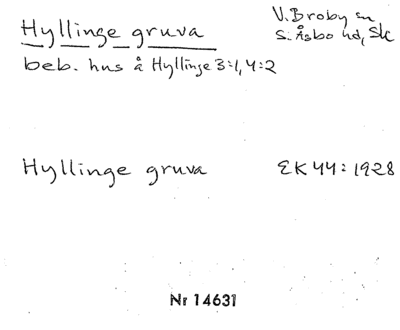 Hyllinge gruva
V. Broby sn
S. Åsbo hd, Sk
beb. hus å Hyllinge 3:1, 4:2
Hyllinge gruva
EK 44: 1928
Nr 14631